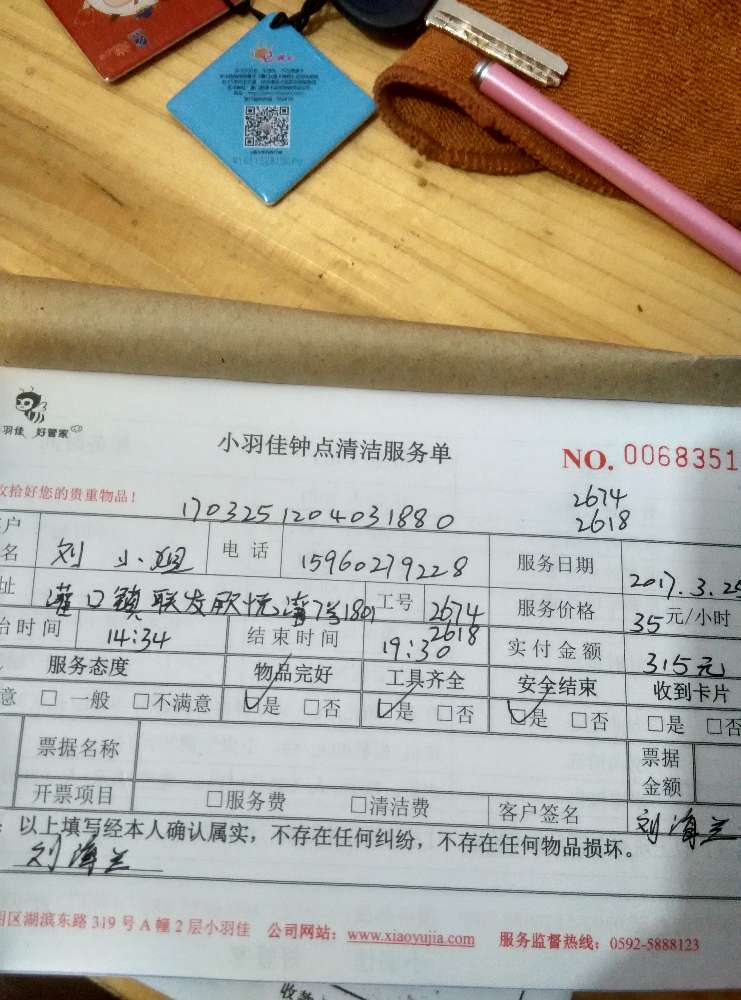 羽佳 好管家
小羽佳钟点清洁服务单
NO. 0068351
收拾好您的贵重物品！
170325120403188 0
2674
2618
客户
名 刘小姐 电话 15960279228 服务日期 2017.3.25
址 灌口镇联发欣悦 1801 工号 2674 2618 服务价格 35元/小时
始时间 14:34 结束时间 19:30 实付金额 315元
服务态度 物品完好 工具齐全 安全结束 收到卡片
意 □一般 □不满意 ☑是 □否 ☑是 □否 ☑是 □否 □是 □否
票据名称 票据金额
开票项目 □服务费 □清洁费 客户签名 刘海兰
：以上填写经本人确认属实，不存在任何纠纷，不存在任何物品损坏。
刘海兰
明区湖滨东路 319 号 A 幢 2 层小羽佳 公司网站：www.xiaoyujia.com 服务监督热线：0592-5888123